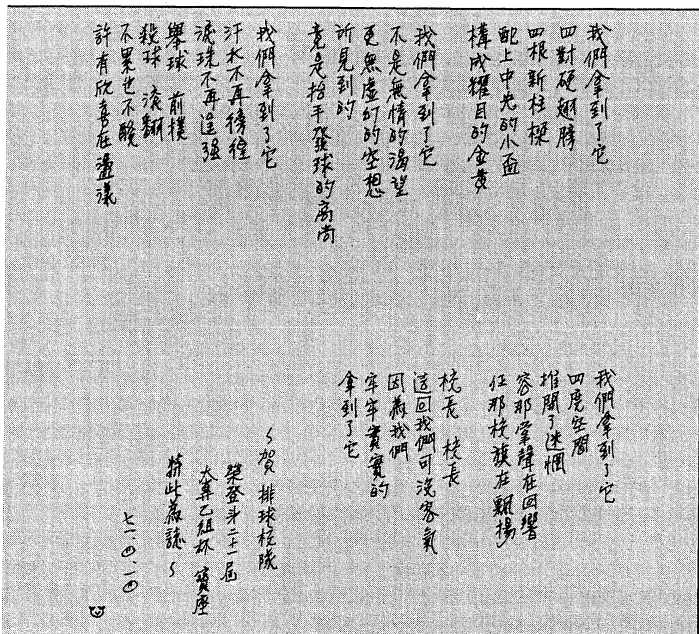 我們拿到了它
四對硬翅膀
四根新柱樑
配上中光的小盃
構成耀目的金黃
我們拿到了它
不是無情的渴望
更無虛幻的空想
所見到的
竟是抬手發球的高尚
我們拿到了它
汗水不再徬徨
淚珠不再逞強
舉球 前撲
殺球 滾翻
不累也不酸
許有欣喜在盪漾
我們拿到了它
四度空間
推開了迷惘
容那掌聲在回響
任那校旗在飄揚
校長 校長
這回我們可沒客氣
因為我們
牢牢實實的
拿到了它
~賀 排球校隊
榮登 二十一屆
大專乙組杯 寶座
特此為誌~
七一.四.一四